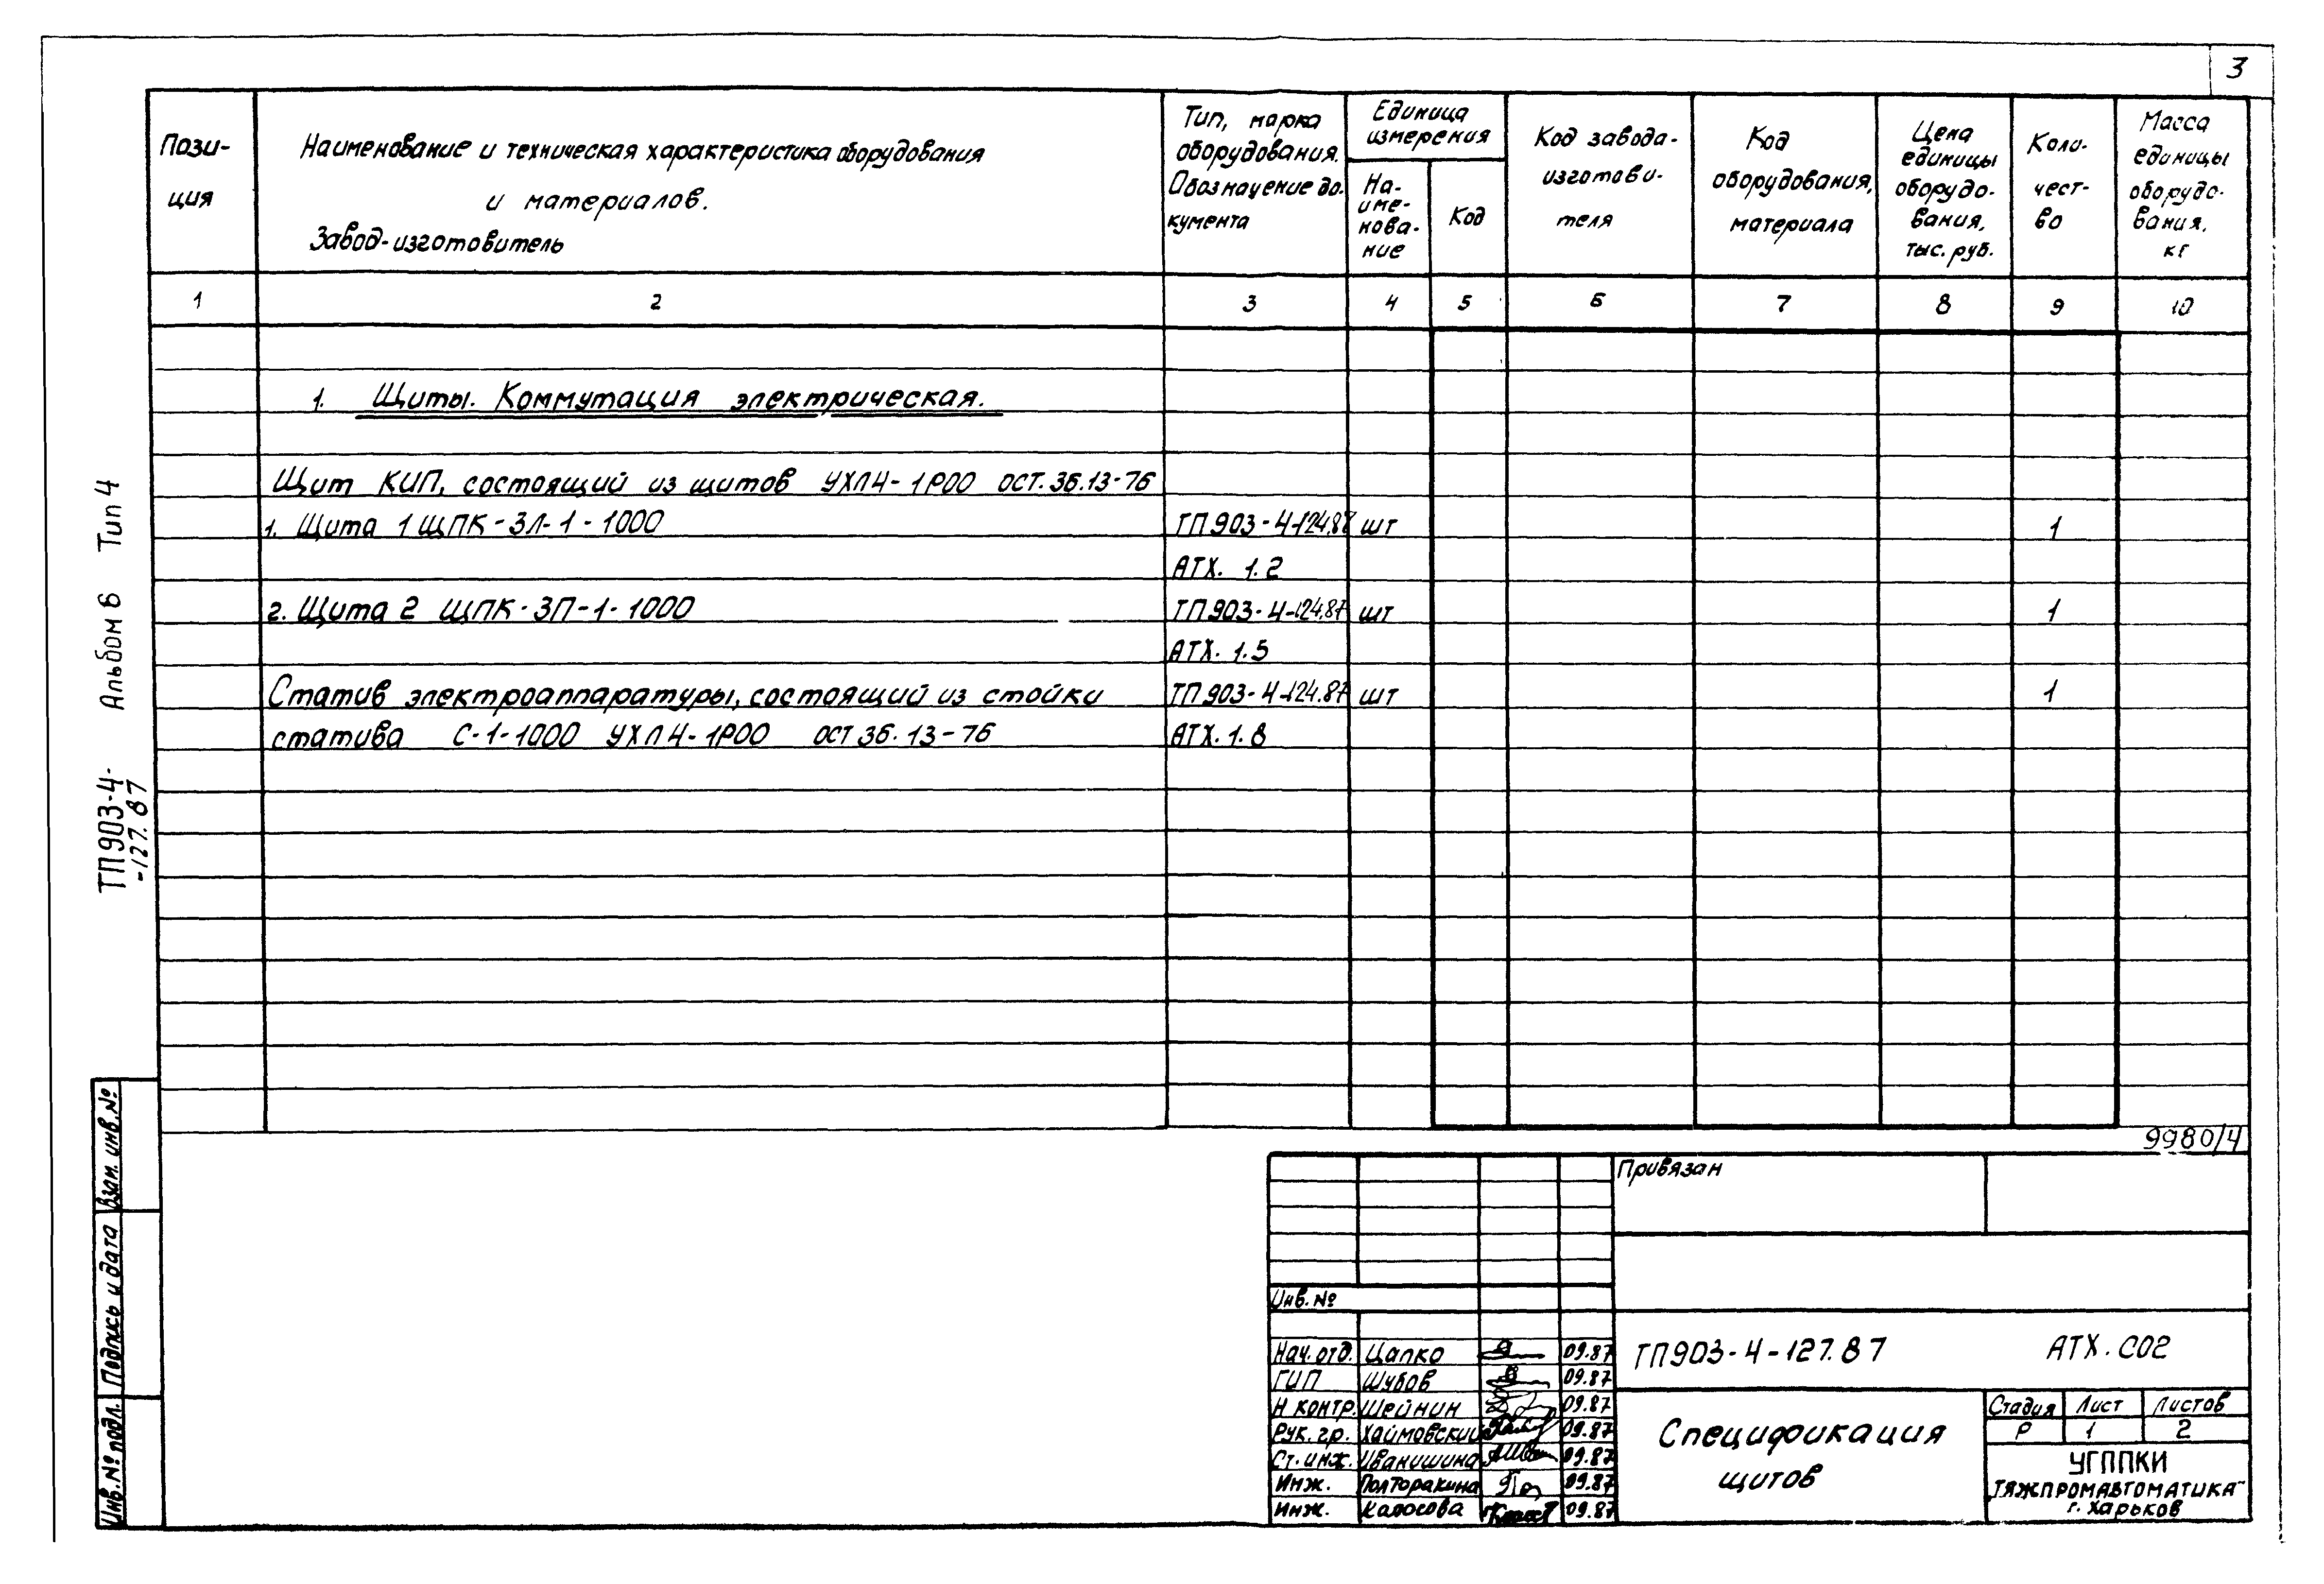 3
Пози-
ция
Наименование и техническая характеристика оборудования
и материалов.
Завод-изготовитель
Тип, марка
оборудования.
Обозначение до-
кумента
Единица
измерения
На-
име-
нова-
ние
Код
Код завода-
изготови-
теля
Код
оборудования,
материала
Цена
единицы
оборудо-
вания,
тыс. руб.
Коли-
чест-
во
Масса
единицы
оборудо-
вания,
кг
1 2 3 4 5 6 7 8 9 10
1. Щиты. Коммутация электрическая.
Щит КИП, состоящий из щитов УХЛ4-1Р00 ОСТ.36.13-76
1. Щита 1 ЩПК-ЗЛ-1-1000 ТП903-4-124.87 шт 1
АТХ. 1.2
2. Щита 2 ЩПК-ЗП-1-1000 ТП903-4-124.87 шт 1
АТХ. 1.5
Статив электроаппаратуры, состоящий из стойки ТП903-4-124.87 шт 1
статива С-1-1000 УХЛ4-1Р00 ОСТ 36.13-76 АТХ.1.8
ТП903-4-
-127.87
Альбом 6 Тип 4
Взам. инв. №
Подпись и дата
Инв. № подл.
9980/4
Привязан
Инв. №
Нач. отд. Цапко 09.87
ГИП Шубов 09.87
Н контр. Шейнин 09.87
Рук. гр. Хаймовский 09.87
Ст. инж. Иванишина 09.87
Инж. Полторакина 09.87
Инж. Калосова 09.87
ТП903-4-127.87 АТХ.СО2
Спецификация
щитов
Стадия Лист Листов
Р 1 2
УГППКИ
"ТЯЖПРОМАВТОМАТИКА"
г. Харьков